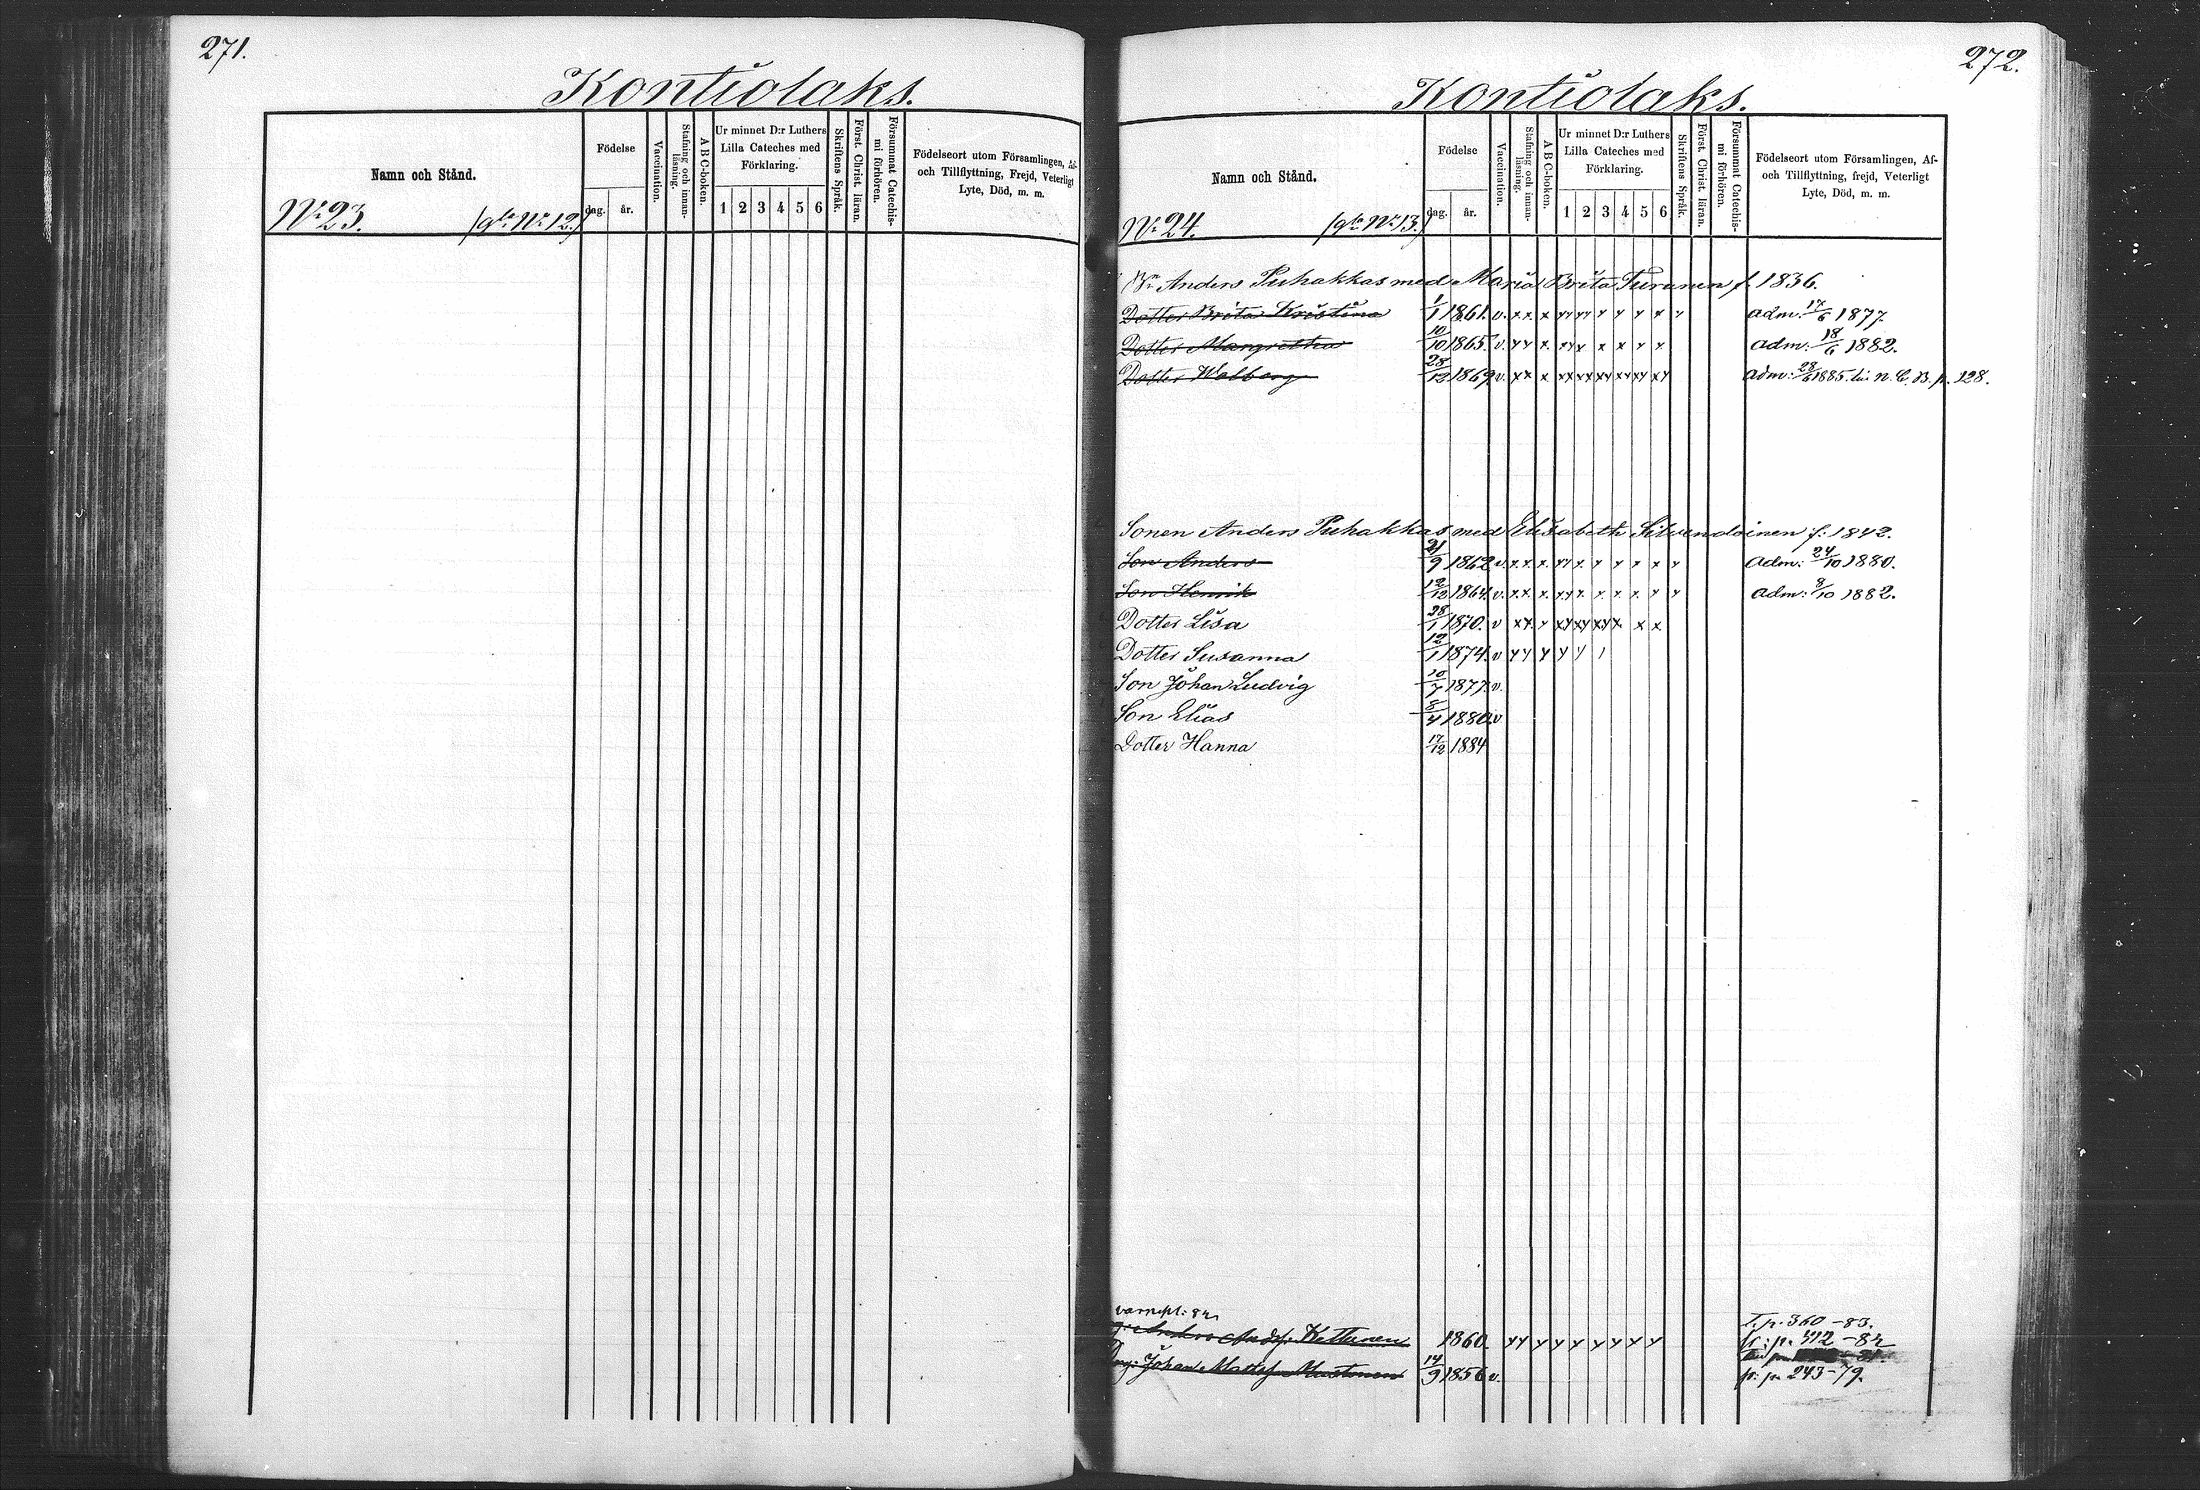 271.
Kontiolaks.
Namn och Stånd.
Födelse
dag. år.
Vaccination.
Stafning och innan-läsning.
A B C-boken.
Ur minnet D:r Luthers
Lilla Cateches med
Förklaring.
1 2 3 4 5 6
Skriftens Språk.
Först. Christ. läran.
Försummat Catechis-mi förhören.
Födelseort utom Församlingen, Af-
och Tillflyttning, Frejd, Veterligt
Lyte, Död, m. m.
No 23. (gla No 12.)
272.
Kontiolaks.
Namn och Stånd.
Födelse
dag. år.
Vaccination.
Stafning och innan-läsning.
A B C-boken.
Ur minnet D:r Luthers
Lilla Cateches med
Förklaring.
1 2 3 4 5 6
Skriftens Språk.
Först. Christ. läran.
Försummat Catechis-mi förhören.
Födelseort utom Församlingen, Af-
och Tillflyttning, frejd, Veterligt
Lyte, Död, m. m.
No 24. (gla No 13.)
Bn Anders Puhakkas med Maria Brita Turunen f. 1836.
Dotter Brita Kristina 1/1 1861. v. x x x x x x x x x x x adm. 17/6 1877.
Dotter Margretha 10/10 1865. v. x x x x x x x x x x adm: 18/6 1882.
Dotter Walborg 28/12 1869 v. x x x x x x x x x x x x x x x adm: 28/6 1885. n. C. B. p. 128.
Sonen Anders Puhakkas med Elisabeth Silvendoinen f: 1842.
Son Anders 21/9 1862 v. x x x x x x x x x x x Adm: 24/10 1880.
Son Henrik 12/12 1864. v. x x x x x x x x x x x adm: 8/10 1882.
Dotter Lisa 28/1 1870. v x x x x x x x x x x x x
Dotter Susanna 12/1 1874. v x x x x x
Son Johan Ludvig 10/7 1877. v.
Son Elias 8/4 1880. v
Dotter Hanna 17/12 1884
värnepl: 82
Anders Andsf: Kettunen 1860. x x x x x x x x x T. p. 360-83.
fr: p. 312-82
Drg: Johan Matsf. Mustonen 14/9 1856 v. fr: p. 243-79.